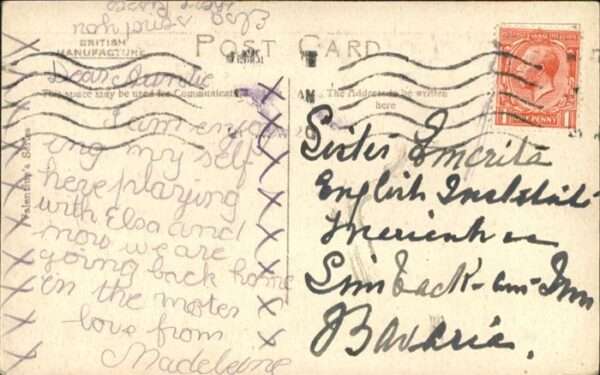 Elsa
is send you
BRITISH
MANUFACTURE
POST CARD
This space may be used for Communication
The Address to be written
here
Valentine's Series
Dear Auntie
I am enjoy
ing my self
here playing
with Elsa and
now we are
going back home
in the motor
love from
Madeleine
Sister Emerita
English Institute
Simback-am-Inn
Bavaria.
1 PENNY 1